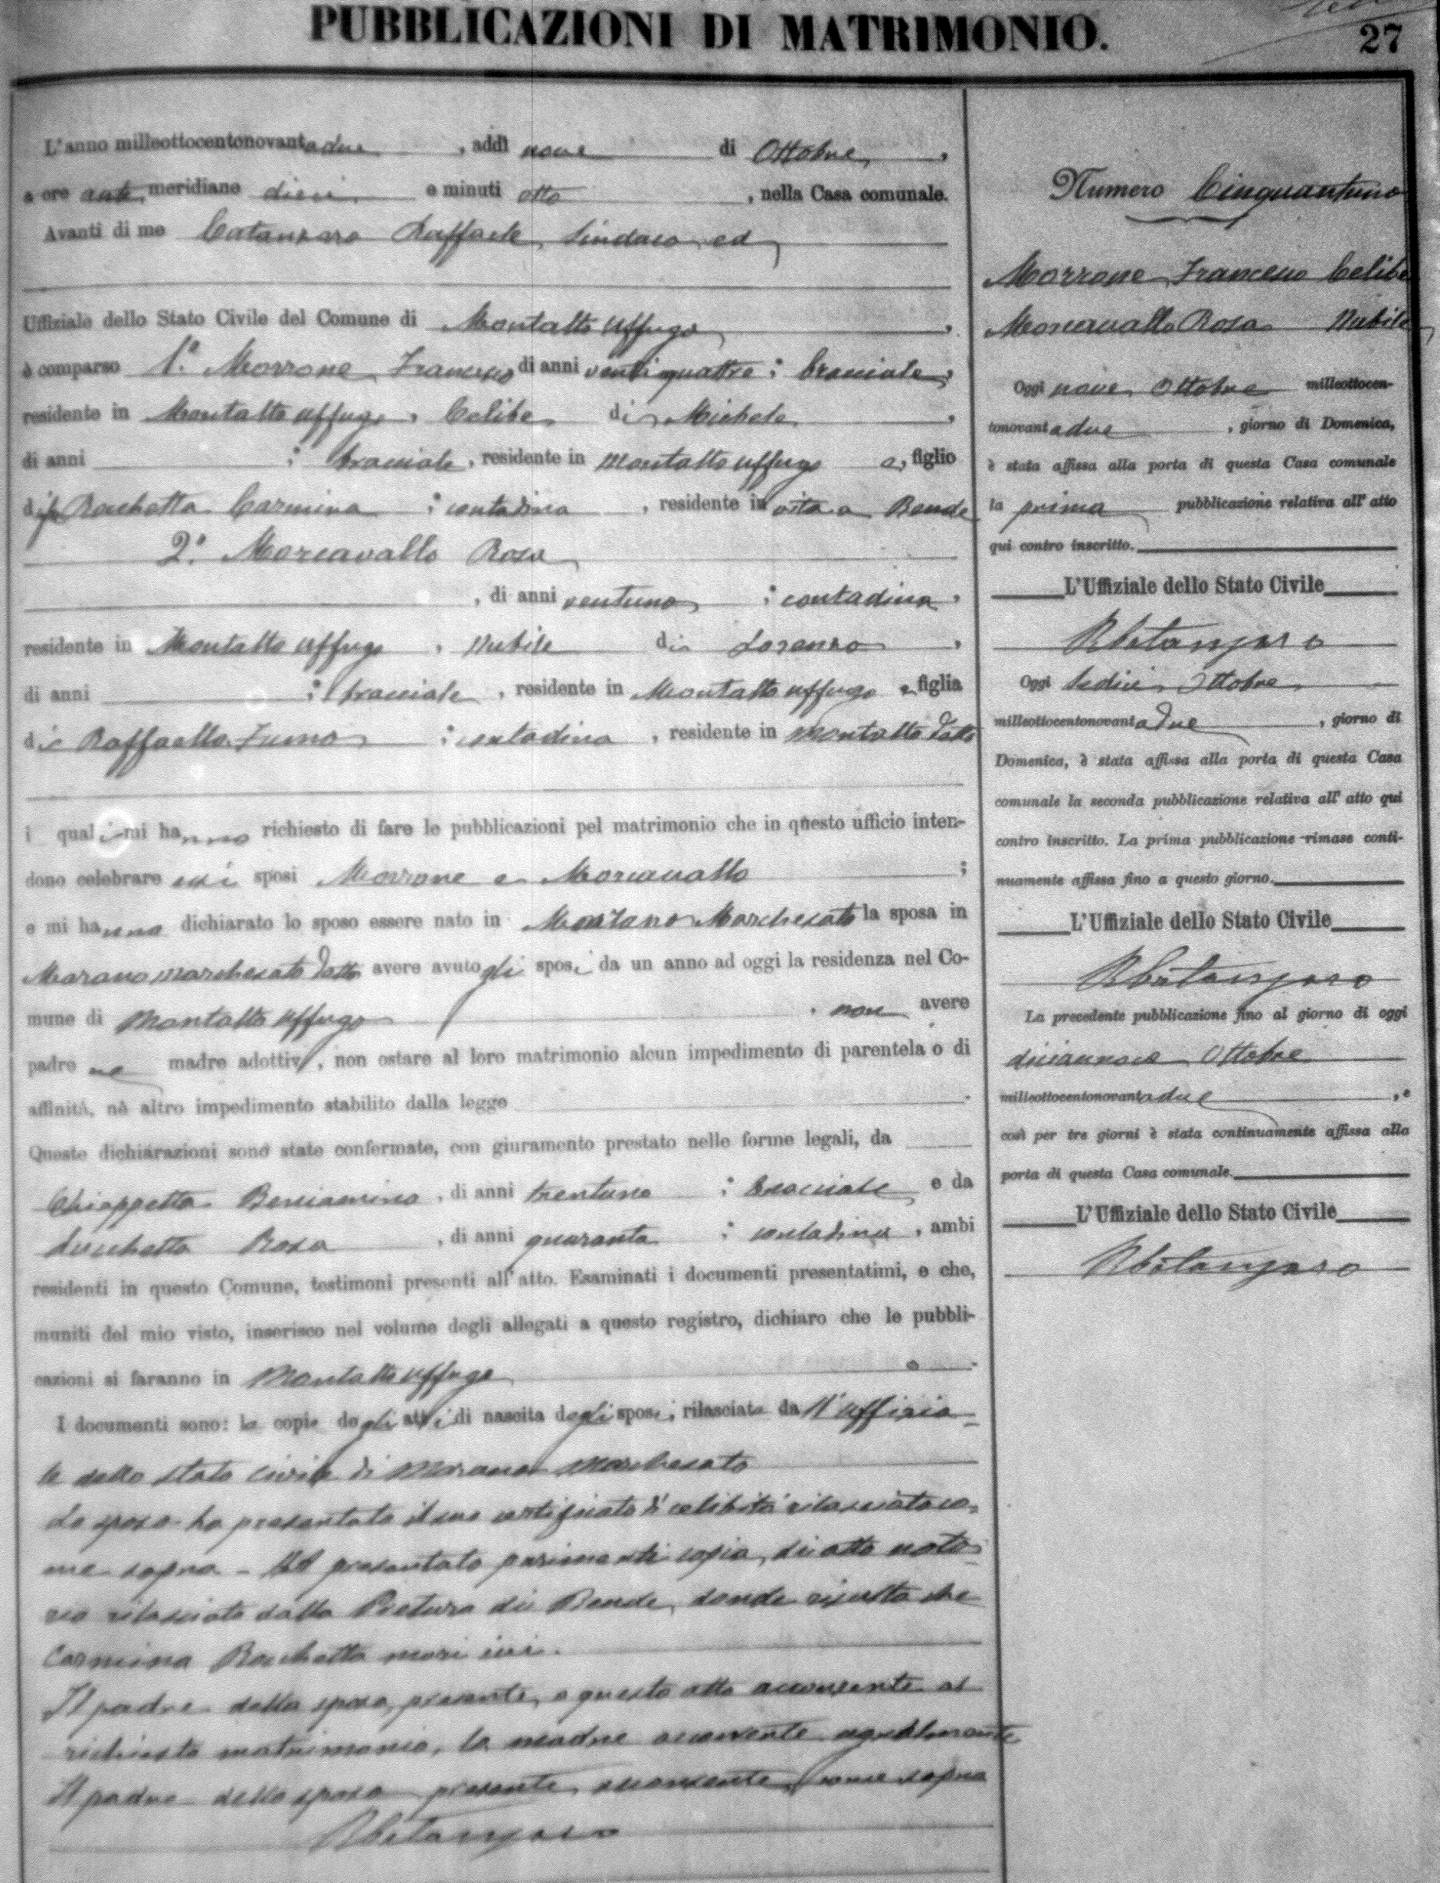 PUBBLICAZIONI DI MATRIMONIO.
27
L'anno milleottocentonovantadue, addì nove di Ottobre,
a ore ante meridiane dieci e minuti otto, nella Casa comunale.
Avanti di me Catanzaro Raffaele Sindaco ed
Uffiziale dello Stato Civile del Comune di Montalto Uffugo,
è comparso 1.° Morrone Francesco di anni ventiquattro; bracciale,
residente in Montalto Uffugo, Celibe di Michele,
di anni ; bracciale, residente in Montalto Uffugo e, figlio
di fu Rocchetta Carmina; contadina, residente in vita a Rende
2.° Morcavallo Rosa
, di anni ventuno; contadina,
residente in Montalto Uffugo, Nubile di Lorenzo,
di anni ; bracciale, residente in Montalto Uffugo e figlia
di Raffaella; contadina, residente in Montalto detto
i quali mi hanno richiesto di fare le pubblicazioni pel matrimonio che in questo ufficio inten-
dono celebrare essi sposi Morrone e Morcavallo;
e mi hanno dichiarato lo sposo essere nato in Marano Marchesato la sposa in
Marano marchesato detto avere avuto gli sposi da un anno ad oggi la residenza nel Co-
mune di Montalto Uffugo, non avere
padre ne madre adottivi, non ostare al loro matrimonio alcun impedimento di parentela o di
affinità, nè altro impedimento stabilito dalla legge.
Queste dichiarazioni sono state confermate, con giuramento prestato nelle forme legali, da
Chiappetta Beniamino, di anni trentuno; bracciale e da
Rosa, di anni quaranta; contadina, ambi
residenti in questo Comune, testimoni presenti all'atto. Esaminati i documenti presentatimi, e che,
muniti del mio visto, inserisco nel volume degli allegati a questo registro, dichiaro che le pubbli-
cazioni si faranno in Montalto Uffugo.
I documenti sono: le copie degli atti di nascita degli sposi, rilasciate dall'uffizia-
le dello Stato Civile di Marano Marchesato
Lo sposo ha presentato il suo certificato di celibità rilasciato co-
me sopra - Ha presentato parimenti copia di atto noto-
rio rilasciato dalla Pretura di Rende, donde risulta che
Carmina Rocchetta morì ivi.
Il padre della sposa, presente a questo atto acconsente al
richiesto matrimonio, la madre acconsente ugualmente
Il padre dello sposo presente acconsente come sopra
RCatanzaro
Numero Cinquantuno
Morrone Francesco Celibe
Morcavallo Rosa Nubile
Oggi nove Ottobre milleottocen-
tonovantadue, giorno di Domenica,
è stata affissa alla porta di questa Casa comunale
la prima pubblicazione relativa all'atto
qui contro inscritto.
L'Uffiziale dello Stato Civile
RCatanzaro
Oggi Sedici Ottobre
milleottocentonovantadue, giorno di
Domenica, è stata affissa alla porta di questa Casa
comunale la seconda pubblicazione relativa all'atto qui
contro inscritto. La prima pubblicazione rimase conti-
nuamente affissa fino a questo giorno.
L'Uffiziale dello Stato Civile
RCatanzaro
La precedente pubblicazione fino al giorno di oggi
diciannove Ottobre
milleottocentonovantadue, e
così per tre giorni è stata continuamente affissa alla
porta di questa Casa comunale.
L'Uffiziale dello Stato Civile
RCatanzaro